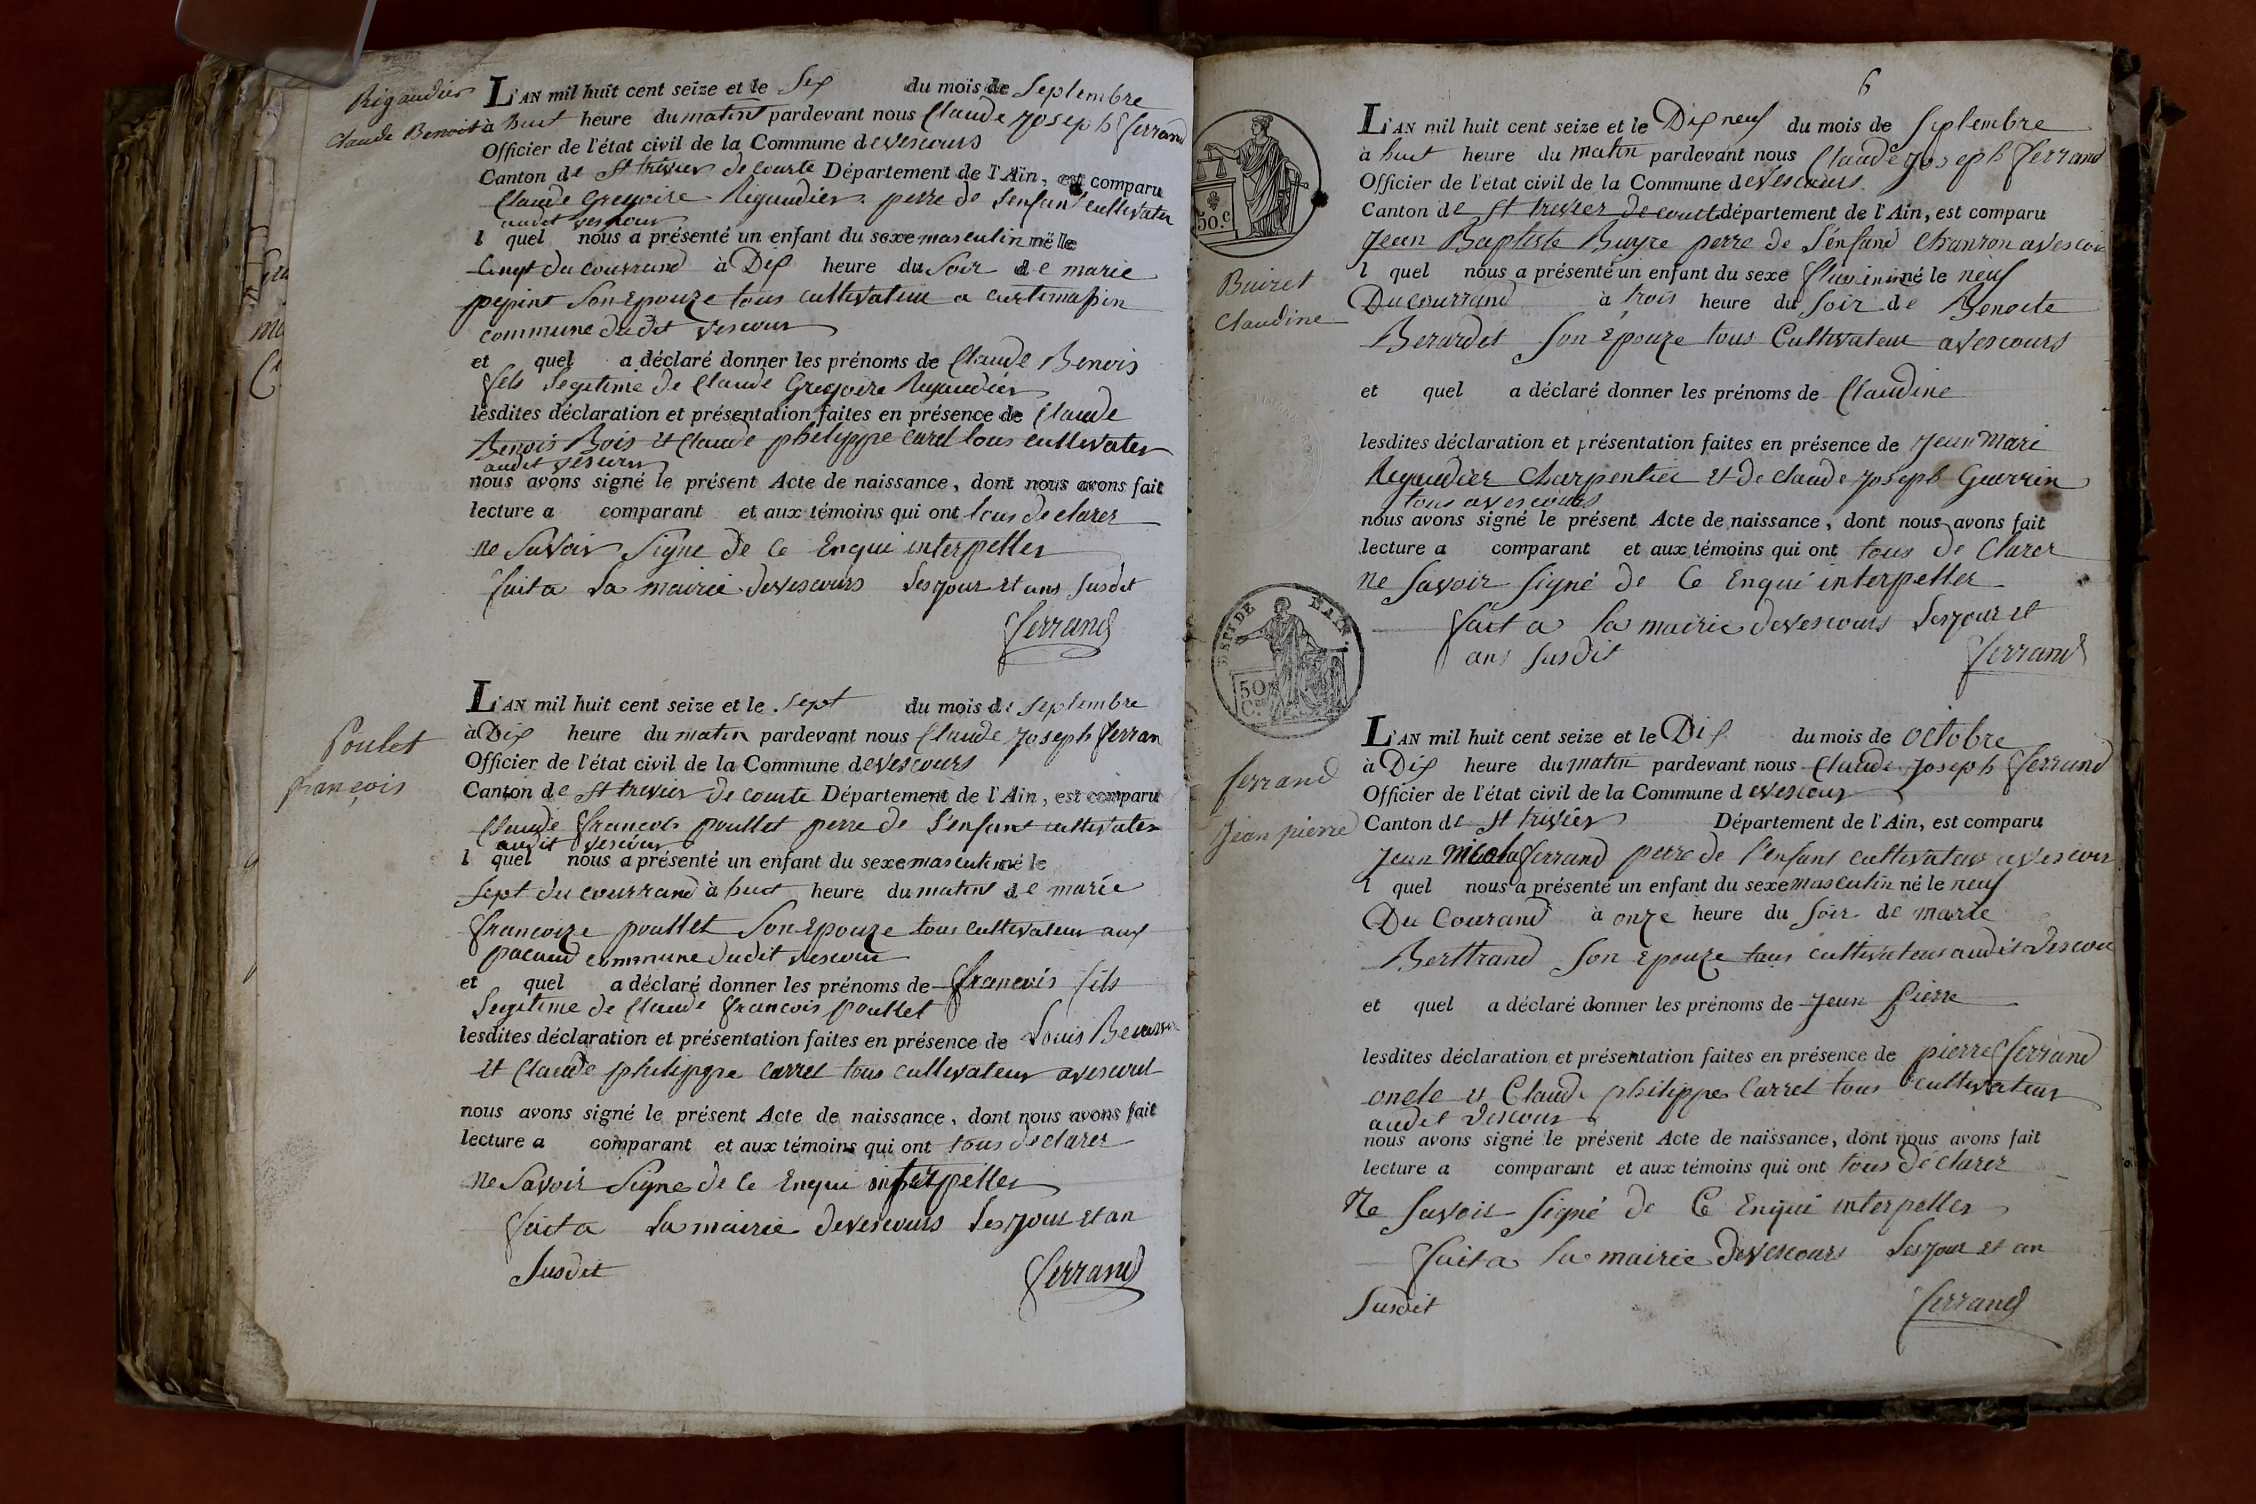 Rigaudier
Claude Benoit
L'AN mil huit cent seize et le Six du mois de Septembre
à huit heure du matin pardevant nous Claude Joseph ferrand
Officier de l'état civil de la Commune de vescours
Canton de St trivier de Courte Département de l'Ain, est comparu
Claude Gregoire Rigaudier perre de l'enfant cultivater
audit vescour
l quel nous a présenté un enfant du sexe masculin né le
cinq du courrand à Dix heure du Soir de marie
pepint Son Epouze tous cultivateur a
commune dudit vescour
et quel a déclaré donner les prénoms de Claude Benois
fils legitime de Claude Gregoire Rigaudier
lesdites déclaration et présentation faites en présence de Claude
Benois Bois et Claude philippe carrel tous cultivater
audit vescour
nous avons signé le présent Acte de naissance, dont nous avons fait
lecture a comparant et aux témoins qui ont tous declarer
ne Savoir Signe de Ce Enqui interpeller
fait a la mairie devescours les jour et ans Susdit
ferrand
Poulet
françois
L'AN mil huit cent seize et le sept du mois de Septembre
à Dix heure du matin pardevant nous Claude Joseph ferran
Officier de l'état civil de la Commune devescours
Canton de St trivier de Courte Département de l'Ain, est comparu
Claude francois poullet perre de l'enfant cultivater
audit vescour
l quel nous a présenté un enfant du sexe masculin né le
sept du courrand à huit heure du matin de marie
francoize poullet Son Epouze tous cultivateur aux
pacaud commune dudit vescour
et quel a déclaré donner les prénoms de francois fils
legitime de Claude francois poullet
lesdites déclaration et présentation faites en présence de Louis
et Claude philippe carrel tous cultivateur
nous avons signé le présent Acte de naissance, dont nous avons fait
lecture a comparant et aux témoins qui ont tous declarer
ne Savoir Signe de Ce Enqui interpeller
fait a la mairie devescours les jour et an
Susdit
ferrand
6
50.c
Buiret
Claudine
L'AN mil huit cent seize et le Dix neuf du mois de Septembre
à huit heure du matin pardevant nous Claude Joseph ferrand
Officier de l'état civil de la Commune devescours
Canton de St trivier de court département de l'Ain, est comparu
Jean Baptiste Buyre perre de l'enfand
l quel nous a présenté un enfant du sexe né le neuf
Du courrand à trois heure du Soir de Benoite
Berardet Son Epouze tous Cultivateur avescours
et quel a déclaré donner les prénoms de Claudine
lesdites déclaration et présentation faites en présence de Jean Mari
Rigaudier Charpentier et de claude joseph Guerrin
tous avescours
nous avons signé le présent Acte de naissance, dont nous avons fait
lecture a comparant et aux témoins qui ont tous de Clarer
ne Savoir Signé de Ce Enqui interpeller
fait a la mairie devescours les jour et
ans Susdit
ferrand
DEPT DE L'AIN
50
C.
ferrand
Jean pierre
L'AN mil huit cent seize et le Dix du mois de octobre
à Dix heure du matin pardevant nous Claude Joseph ferrand
Officier de l'état civil de la Commune devescour
Canton de St trivier Département de l'Ain, est comparu
Jean Nicola ferrand perre de l'enfant cultivater avescour
l quel nous a présenté un enfant du sexe masculin né le neuf
Du Courand à onze heure du Soir de marie
Berttrand Son Epouze tous cultivateur audit vescou
et quel a déclaré donner les prénoms de Jean Pierre
lesdites déclaration et présentation faites en présence de pierre ferrand
oncle et Claude philippe Carrel tous cultivateur
audit vescour
nous avons signé le présent Acte de naissance, dont nous avons fait
lecture a comparant et aux témoins qui ont tous déclarer
Ne Savoir Signé de Ce Enqui interpeller
fait a la mairie devescours les jour et an
Susdit
ferrand